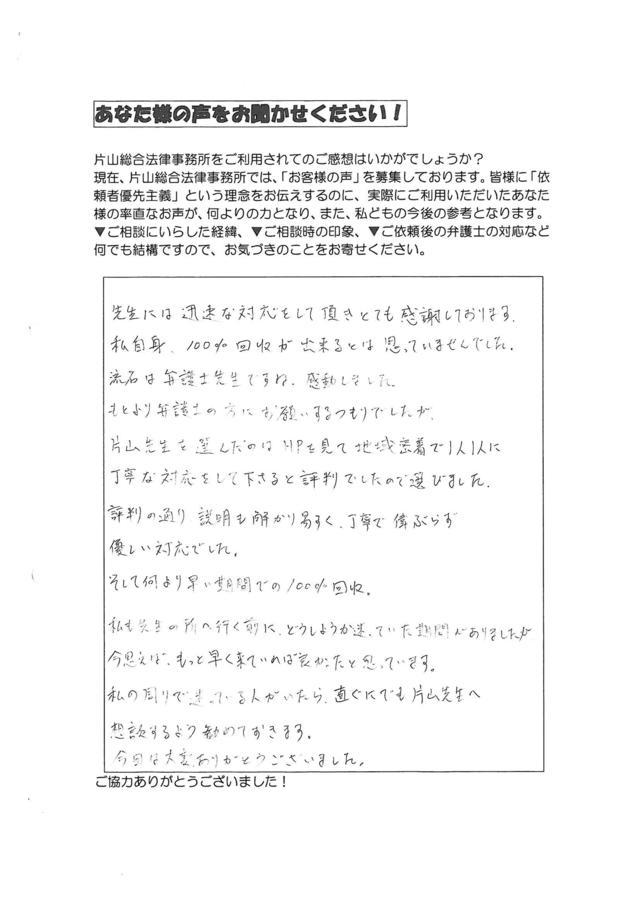 あなた様の声をお聞かせください！
片山総合法律事務所をご利用されてのご感想はいかがでしょうか？
現在、片山総合法律事務所では、「お客様の声」を募集しております。皆様に「依
頼者優先主義」という理念をお伝えするのに、実際にご利用いただいたあなた
様の率直なお声が、何よりの力となり、また、私どもの今後の参考となります。
▼ご相談にいらした経緯、▼ご相談時の印象、▼ご依頼後の弁護士の対応など
何でも結構ですので、お気づきのことをお寄せください。
先生には迅速な対応をして頂きとても感謝しております。
私自身、100%回収が出来るとは思っていませんでした。
流石は弁護士先生ですね。感動しました。
もとより弁護士の方にお願いするつもりでしたが、
片山先生を選んだのはHPを見て地域密着で1人1人に
丁寧な対応をして下さると評判でしたので選びました。
評判の通り説明も解かり易すく、丁寧で偉ぶらず
優しい対応でした。
そして何より早い期間での100%回収。
私も先生の所へ行く前に、どうしようか迷っていた期間がありましたが
今思えば、もっと早く来ていれば良かったと思っています。
私の周りで迷っている人がいたら、直ぐにでも片山先生へ
想談するよう勧めておきます。
今回は大変ありがとうございました。
ご協力ありがとうございました！